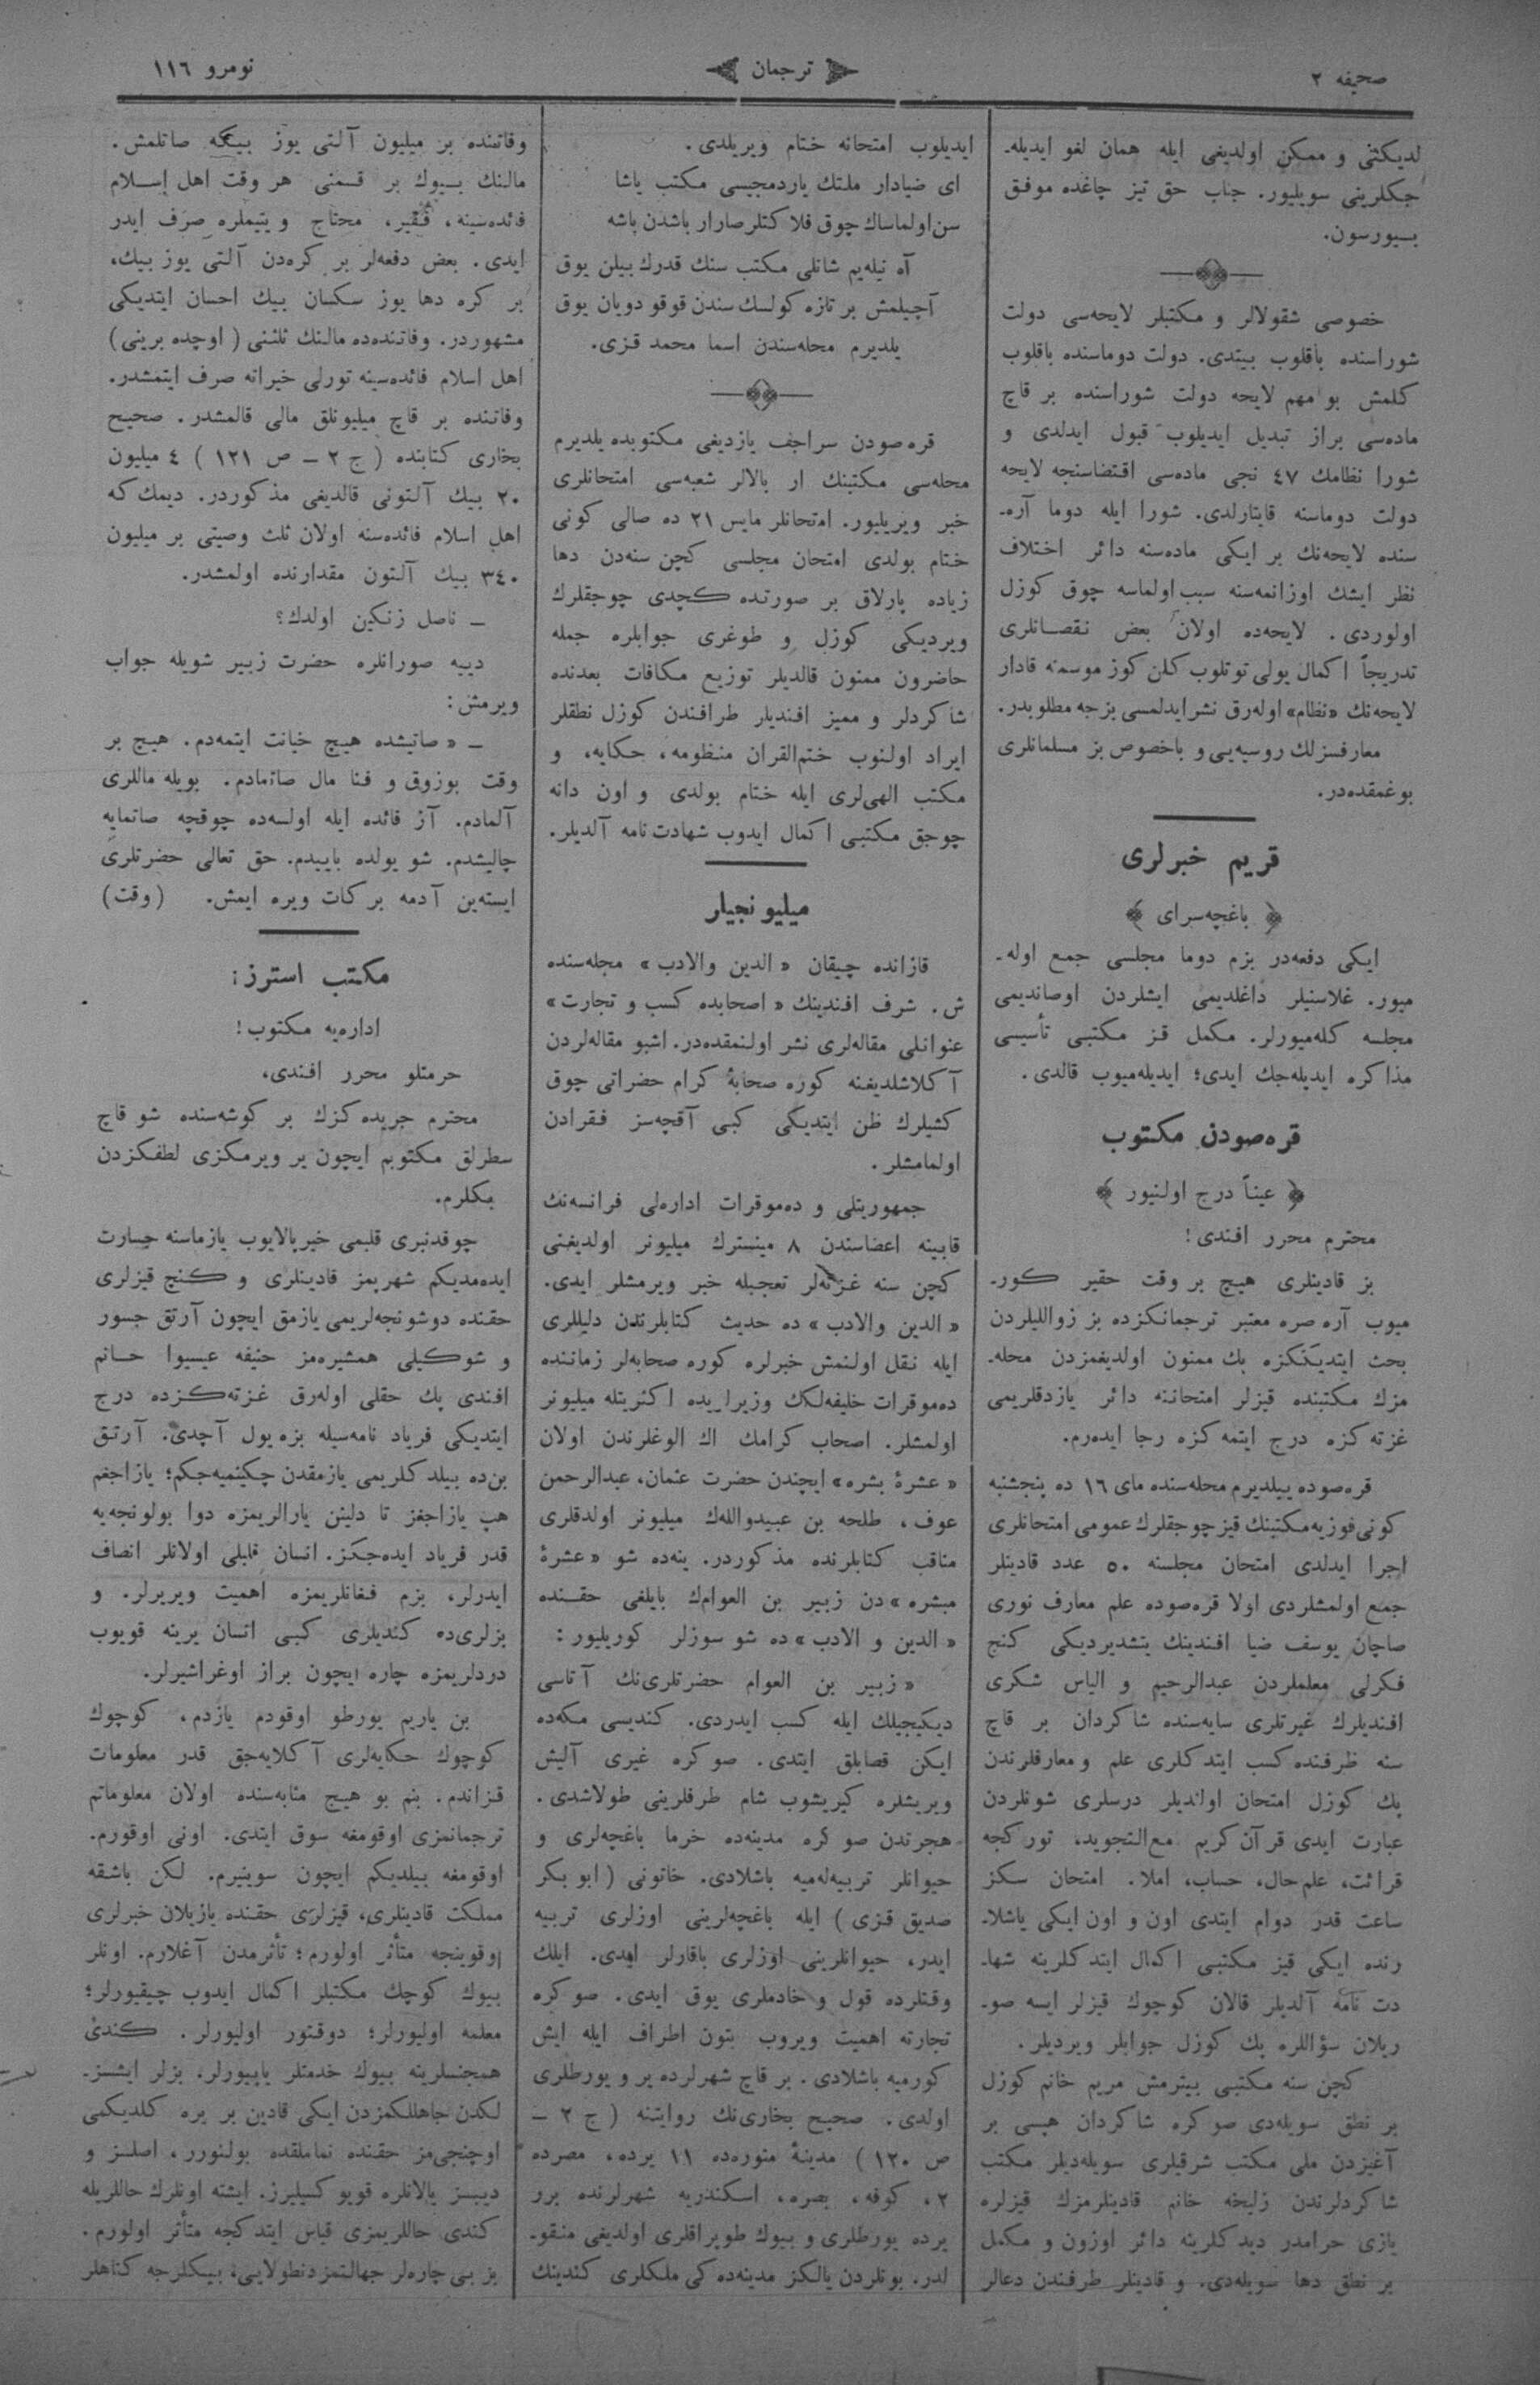 صحیفه ۲
ترجمان
نومرو ۱۱٦
لدیکنی و ممکن اولدیغی ایله همان لغو ایدیله‌ـ
جکلرینی سویلیور. جناب حق تیز چاغده موفق
بـیورسون.
خصوصی شقولالر و مکتبلر لایحه‌سی دولت
شوراسنده باقلوب بیتدی. دولت دوماسنده باقلوب
کلمش بو مهم لایحه دولت شوراسنده بر قاچ
ماده‌سی براز تبدیل ایدیلوب قبول ایدلدی و
شورا نظامك ٤٧ نجی ماده‌سی اقتضاسنجه لایحه
دولت دوماسنه قایتارلدی. شورا ایله دوما آره‌ـ
سنده لایحه‌نك بر ایکی ماده‌سنه دائر اختلاف
نظر ایشك اوزانمه‌سنه سبب اولماسه چوق کوزل
اولوردی. لایحه‌ده اولان بعض نقصـانلری
تدریجاً اکمال یولی توتلوب کلن کوز موسمنه قادار
لایحه‌نك «نظام» اوله‌رق نشر ایدلمسی بزجه مطلوبدر.
معارفسزلك روسیه‌یی و باخصوص بز مسلمانلری
بوغمقده‌در.
قریم خبرلری
﴿ باغچه‌سرای ﴾
ایکی دفعه‌در بزم دوما مجلسی جمع اوله‌ـ
میور. غلاسنیلر داغلدیمی ایشلردن اوصاندیمی
مجلسه کله‌میورلر. مکمل قز مکتبی تأسیسی
مذاکره ایدیله‌جك ایدی؛ ایدیله‌میوب قالدی.
قره‌صودن مکتوب
﴿ عیناً درج اولنیور ﴾
محترم محرر افندی!
بز قادینلری هیچ بر وقت حقیر کورـ
میوب آره صره معتبر ترجمانکزده بز زواللیلردن
بحث ایتدیکنکزه پك ممنون اولدیغمزدن محله‌ـ
مزك مکتبنده قیزلر امتحاننه دائر یازدقلریمی
غزته کزه درج ایتمه کزه رجا ایده‌رم.
قره‌صوده ییلدیرم محله‌سنده مای ۱٦ ده پنجشنبه
کونی فوزیه مکتبنك قیز چوجقلرك عمومی امتحانلری
اجرا ایدلدی امتحان مجلسنه ٥٠ عدد قادینلر
جمع اولمشلردی اولا قره‌صوده علم معارف نوری
صاچان یوسف ضیا افندینك یتشدیردیکی کنج
فکرلی معلملردن عبدالرحیم و الیاس شکری
افندیلرك غیرتلری سایه‌سنده شاکردان بر قاچ
سنه ظرفنده کسب ایتدکلری علم و معارفلرندن
پك کوزل امتحان اولندیلر درسلری شونلردن
عبارت ایدی قرآن کریم مع‌التجوید، تورکجه
قرائت، علم‌حال، حساب، املا. امتحان سکز
ساعت قدر دوام ایتدی اون و اون ایکی یاشلاـ
رنده ایکی قیز مکتبی اکمال ایتدکلرینه شهاـ
دت نامه آلدیلر قالان کوچوك قیزلر ایسه صوـ
ریلان سؤاللره پك کوزل جوابلر ویردیلر.
کچن سنه مکتبی بیترمش مریم خانم کوزل
بر نطق سویله‌دی صوکره شاکردان هپسی بر
آغیزدن ملی مکتب شرقیلری سویله‌دیلر مکتب
شاکردلرندن زلیخه خانم قادینلرمزك قیزلره
یازی حرامدر دیدکلرینه دائر اوزون و مکمل
بر نطق دها سویله‌دی. و قادینلر طرفندن دعالر
ایدیلوب امتحانه ختام ویریلدی.
ای ضیادار ملتك یاردمجیسی مکتب یاشا
سن‌اولماساك چوق فلاکتلر صارار باشدن باشه
آه نیله‌یم شانلی مکتب سنك قدرك بیلن یوق
آچیلمش بر تازه کولسك سندن قوقو دویان یوق
یلدیرم محله‌سندن اسما محمد قـزی.
قره‌صودن سراجف یازدیغی مکتوبده یلدیرم
محله‌سی مکتبنك ار بالالر شعبه‌سی امتحانلری
خبر ویریلیور. امتحانلر مایس ۲۱ ده صالی کونی
ختام بولدی امتحان مجلسی کچن سنه‌دن دها
زیاده پارلاق بر صورتده کچدی چوجقلرك
ویردیکی کوزل و طوغری جوابلره جمله
حاضرون ممنون قالدیلر توزیع مکافات بعدنده
شاکردلر و ممیز افندیلر طرافندن کوزل نطقلر
ایراد اولنوب ختم‌القران منظومه، حکایه، و
مکتب الهی‌لری ایله ختام بولدی و اون دانه
چوجق مکتبی اکمال ایدوب شهادت نامه آلدیلر.
میلیونجیلر
قازانده چیقان «الدین والادب» مجله‌سنده
ش. شرف افندینك «اصحابده کسب و تجارت»
عنوانلی مقاله‌لری نشر اولنمقده‌در. اشبو مقاله‌لردن
آکلاشلدیغنه کوره صحابهٔ کرام حضراتی چوق
کشیلرك ظن ایتدیکی کبی آقچه‌سز فقرادن
اولمامشلر.
جمهوریتلی و ده‌موقرات اداره‌لی فرانسه‌نك
قابینه اعضاسندن ۸ مینسترك میلیونر اولدیغنی
کچن سنه غزته‌لر تعجبله خبر ویرمشلر ایدی.
«الدین والادب» ده حدیث کتابلرندن دلیللری
ایله نقل اولنمش خبرلره کوره صحابه‌لر زماننده
ده‌موقرات خلیفه‌لك وزیرلریده اکثریتله میلیونر
اولمشلر. اصحاب کرامك اك الوغلرندن اولان
«عشرهٔ بشره» ایچندن حضرت عثمان، عبدالرحمن
عوف، طلحه بن عبیدوالله‌ك میلیونر اولدقلری
مناقب کتابلرنده مذکوردر. ینه‌ده شو «عشرهٔ
مبشره» دن زبیر بن العوام‌ك بایلغی حقـنده
«الدین و الادب» ده شو سوزلر کوریلیور:
«زبیر بن العوام حضرتلری‌نك آتاسی
دیکیجیلك ایله کسب ایدردی. کندیسی مکه‌ده
ایکن قصابلق ایتدی. صوکره غیری آلیش
ویریشلره کیریشوب شام طرفلرینی طولاشدی.
هجرتدن صوکره مدینه‌ده خرما باغچه‌لری و
حیوانلر تربیه‌له‌میه باشلادی. خاتونی (ابوبکر
صدیق قـزی) ایله باغچه‌لرینی اوزلری تربیه
ایدر، حیوانلرینی اوزلری باقارلر ایدی. ایلك
وقتلرده قول و خادملری یوق ایدی. صوکره
تجارته اهمیت ویروب بتون اطراف ایله ایش
کورمیه باشلادی. بر قاچ شهرلرده یر و یورطلری
اولدی. صحیح بخاری‌نك روایتنه (ج ۲ ــ
ص ۱۲۰) مدینهٔ منوره‌ده ۱۱ یرده، مصرده
۲، کوفه، بصره، اسکندریه شهرلرنده برر
یرده یورطلری و بیوك طوپراقلری اولدیغی منقوـ
لدر. بونلردن یالکز مدینه‌ده کی ملکلری کندینك
وفاتنده بر میلیون آلتی یوز بیکه صاتلمش.
مالنك بـیوك بر قـسمنی هر وقت اهل اسـلام
فائده‌سینه، فقیر، محتاج و یتیملره صرف ایدر
ایدی. بعض دفعه‌لر بر کره‌دن آلتی یوز بیك،
بر کره دها یوز سکسان بیك احسان ایتدیکی
مشهوردر. وفاتنده‌ده مالنك ثلثنی (اوچده برینی)
اهل اسلام فائده‌سینه تورلی خیراته صرف ایتمشدر.
وفاتنده بر قاچ میلیونلق مالی قالمشدر. صحیح
بخاری کتابنده (ج ۲ ــ ص ۱۲۱) ٤ میلیون
۲۰ بیك آلتونی قالدیغی مذکوردر. دیمك که
اهل اسلام فائده‌سنه اولان ثلث وصیتی بر میلیون
۳٤۰ بیك آلتون مقدارنده اولمشدر.
ــ ناصل زنکین اولدك؟
دییه صورانلره حضرت زبیر شویله جواب
ویرمش:
ــ «صاتیشده هیچ خیانت ایتمه‌دم. هیچ بر
وقت بوزوق و فنا مال صاتمادم. بویله ماللری
آلمادم. آز فائده ایله اولسه‌ده چوقچه صاتمایه
چالیشدم. شو یولده باییدم. حق تعالی حضرتلری
ایسته‌ین آدمه برکات ویره ایمش. (وقت)
مکتب استرز!
اداره‌یه مکتوب!
حرمتلو محرر افندی،
محترم جریده کزك بر کوشه‌سنده شو قاچ
سطرلق مکتوبم ایچون یر ویرمکزی لطفکزدن
بکلرم.
چوقدنبری قلبمی خیرپالایوب یازماسنه جسارت
ایده‌مدیکم شهریمز قادینلری و کنج قیزلری
حقنده دوشونجه‌لریمی یازمق ایچون آرتق جسور
و شوکیلی همشیره‌مز حنیفه عیسیوا خـانم
افندی پك حقلی اوله‌رق غزته‌کزده درج
ایتدیکی فریاد نامه‌سیله بزه یول آچدی. آرتق
بن‌ده بیلدکلریمی یازمقدن چکنمیه‌جکم؛ یازاجغم
هپ یازاجغز تا دلینن یارالریمزه دوا بولونجه‌یه
قدر فریاد ایده‌جکز. انسان قلبلی اولانلر انصاف
ایدرلر، بزم فغانلریمزه اهمیت ویریرلر. و
بزلری‌ده کندیلری کبی انسان یرینه قویوب
دردلریمزه چاره ایچون براز اوغراشیرلر.
بن یاریم یورطو اوقودم یازدم، کوچوك
کوچوك حکایه‌لری آکلایه‌جق قدر معلومات
قزاندم. بنم بو هیچ مثابه‌سنده اولان معلوماتم
ترجمانمزی اوقومغه سوق ایتدی. اونی اوقورم.
اوقومغه بیلدیکم ایچون سوینیرم. لکن باشقه
مملکت قادینلری، قیزلری حقنده یازیلان خبرلری
اوقوینجه متأثر اولورم؛ تأثرمدن آغلارم. اونلر
بیوك کوچك مکتبلر اکمال ایدوب چیقیورلر؛
معلمه اولیورلر؛ دوقتور اولیورلر. کندی
همجنسلرینه بیوك خدمتلر یاپیورلر. بزلر ایشسزـ
لکدن جاهللکمزدن ایکی قادین بر یره کلدیکمی
اوچنجی‌مز حقنده نماملقده بولنورر، اصلسز و
دیبسز یالانلره قویو کسیلیرز. ایشته اونلرك حاللریله
کندی حاللریمزی قیاس ایتدکجه متأثر اولورم.
بز بی چاره‌لر جهالتمزدنطولایی، بیکلرجه کناهلر